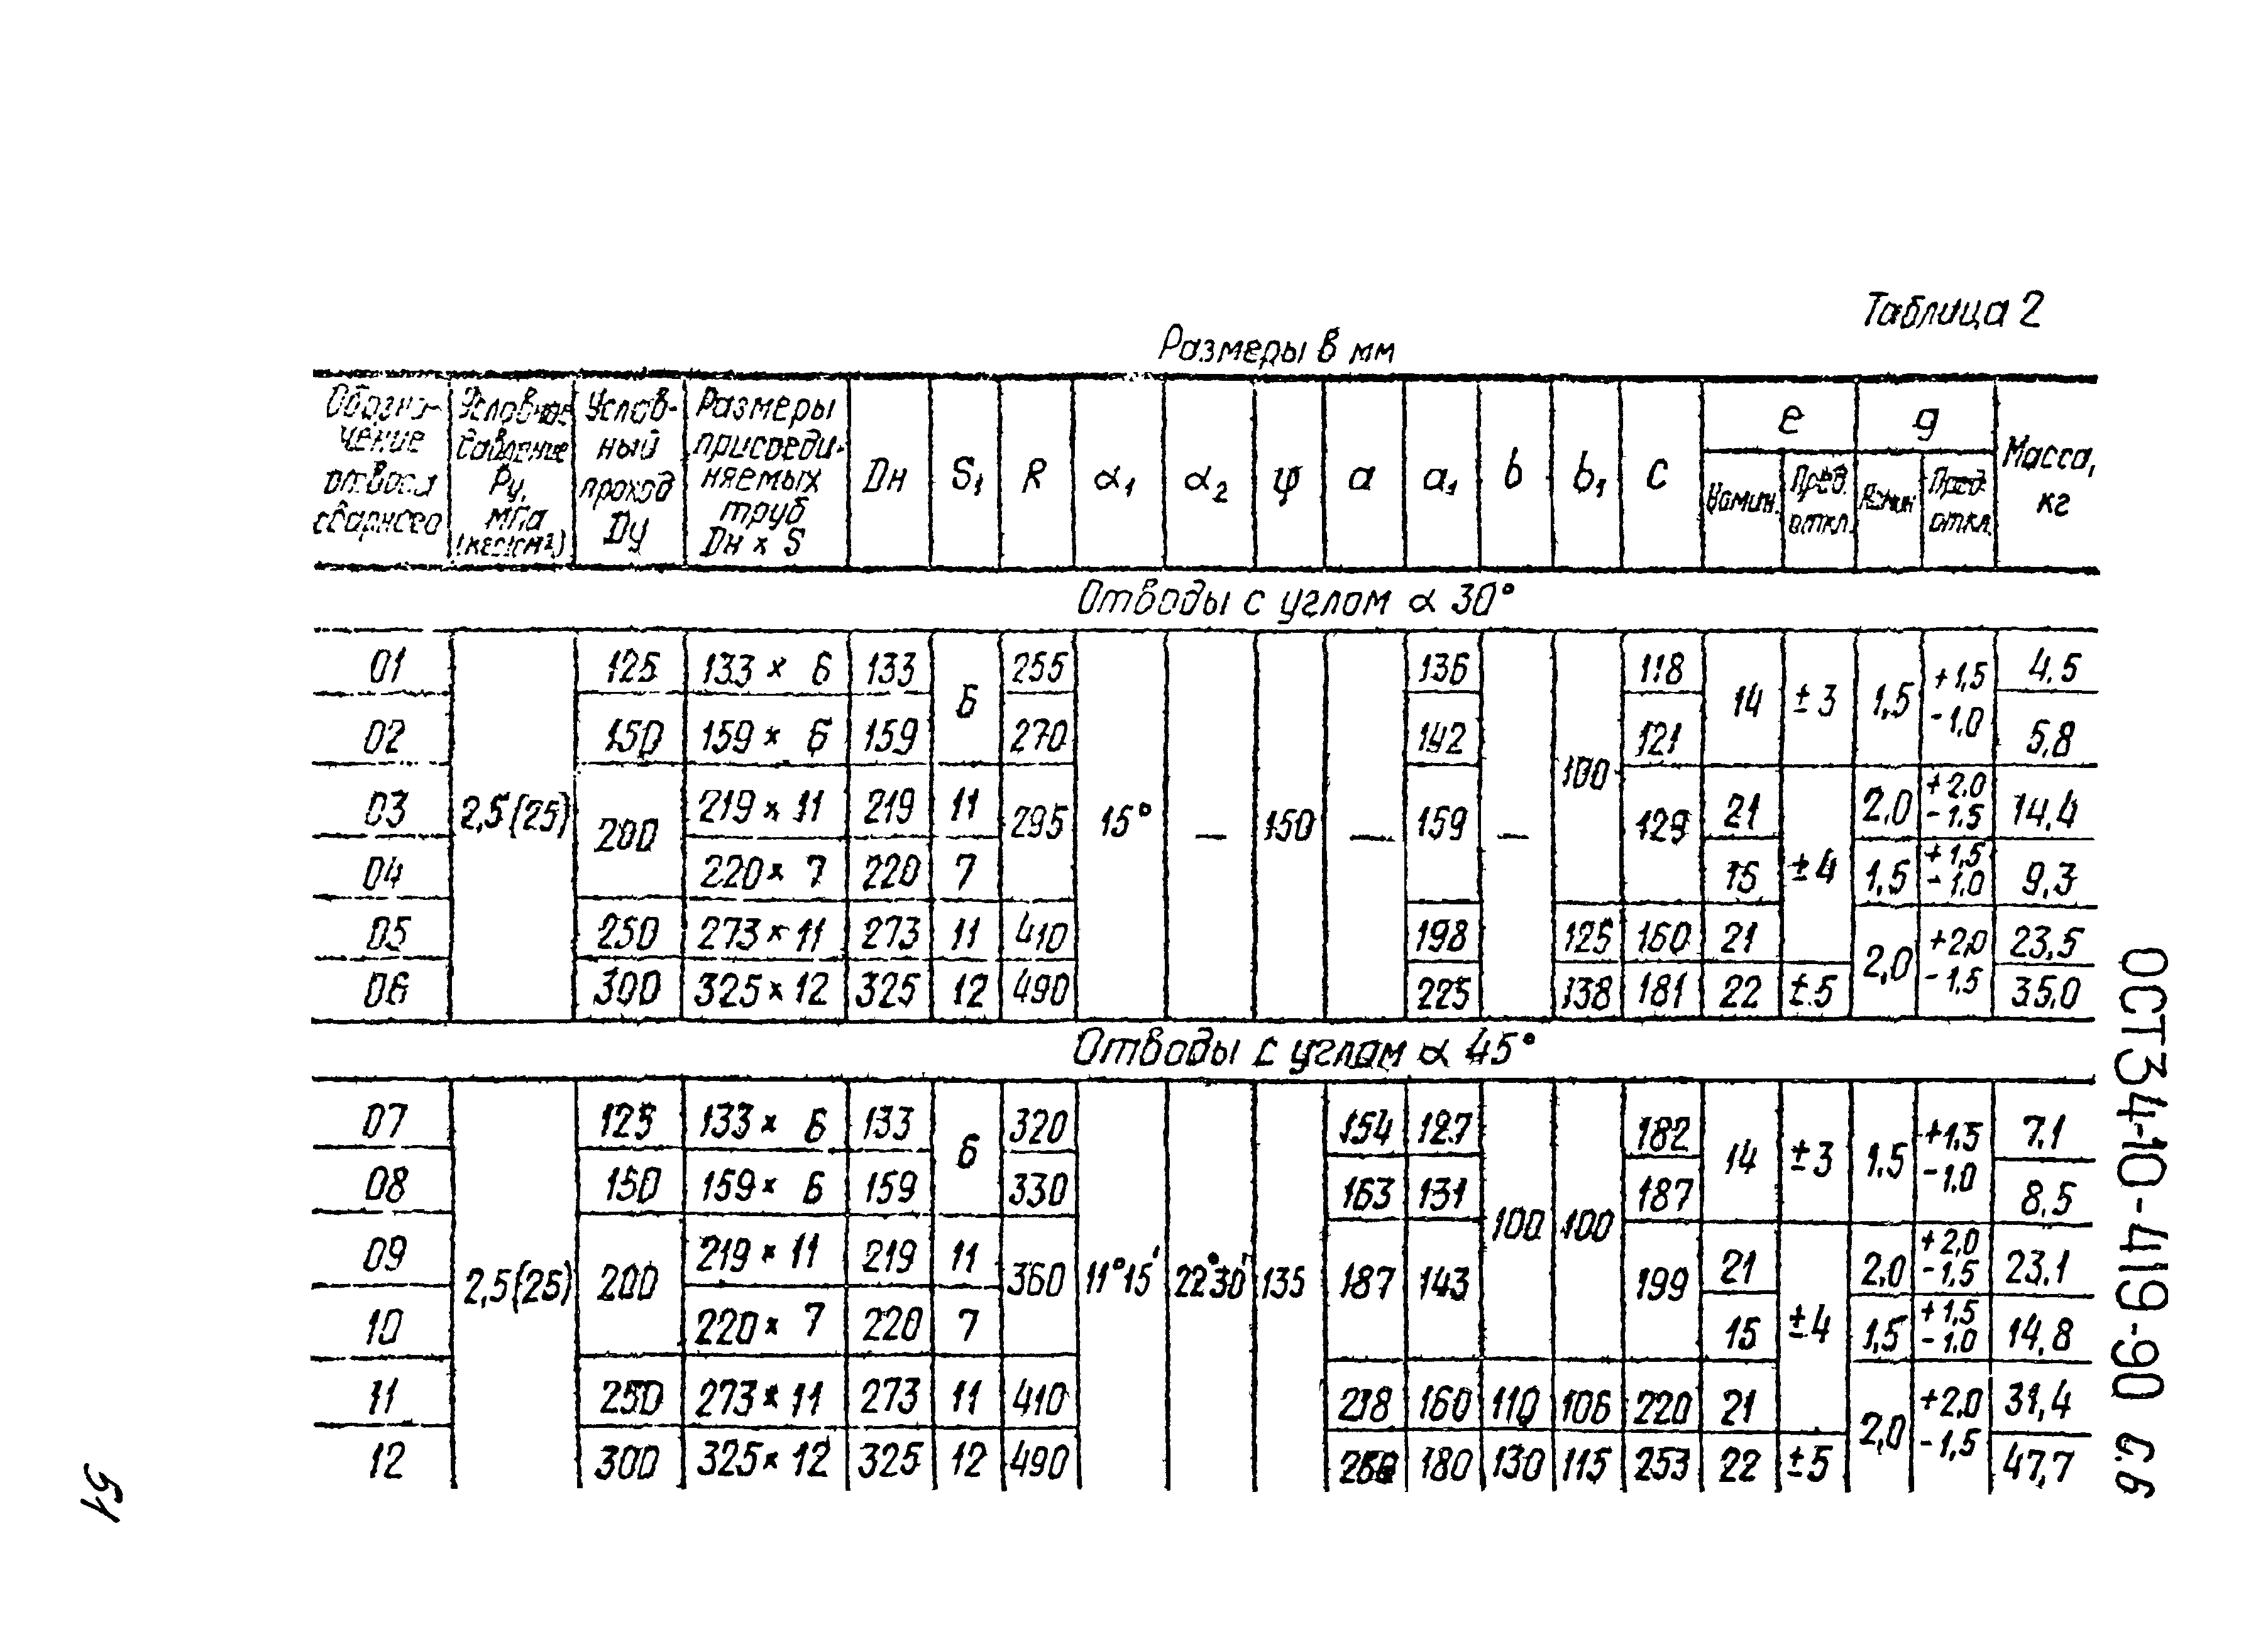 Таблица 2
Размеры в мм
Обозначение отвода сварного | Условное давление Ру, МПа (кгс/см²) | Условный проход Ду | Размеры присоединяемых труб Dн × S | Dн | S₁ | R | α₁ | α₂ | ψ | a | a₁ | b | b₁ | c | e Номин. | e Пред. откл. | g Номин. | g Пред. откл. | Масса, кг
Отводы с углом α 30°
01 | 2,5(25) | 125 | 133 × 6 | 133 | 6 | 255 | 15° | — | 150 | — | 136 | — | 100 | 118 | 14 | ±3 | 1,5 | +1,5 -1,0 | 4,5
02 | 150 | 159 × 6 | 159 | 270 | 142 | 121 | 5,8
03 | 200 | 219 × 11 | 219 | 11 | 295 | 159 | 129 | 21 | ±4 | 2,0 | +2,0 -1,5 | 14,4
04 | 220 × 7 | 220 | 7 | 15 | 1,5 | +1,5 -1,0 | 9,3
05 | 250 | 273 × 11 | 273 | 11 | 410 | 198 | 125 | 160 | 21 | 2,0 | +2,0 -1,5 | 23,5
06 | 300 | 325 × 12 | 325 | 12 | 490 | 225 | 138 | 181 | 22 | ±5 | 35,0
Отводы с углом α 45°
07 | 2,5(25) | 125 | 133 × 6 | 133 | 6 | 320 | 11°15' | 22°30' | 135 | 154 | 127 | 100 | 100 | 182 | 14 | ±3 | 1,5 | +1,5 -1,0 | 7,1
08 | 150 | 159 × 6 | 159 | 330 | 163 | 131 | 187 | 8,5
09 | 200 | 219 × 11 | 219 | 11 | 360 | 187 | 143 | 199 | 21 | ±4 | 2,0 | +2,0 -1,5 | 23,1
10 | 220 × 7 | 220 | 7 | 15 | 1,5 | +1,5 -1,0 | 14,8
11 | 250 | 273 × 11 | 273 | 11 | 410 | 218 | 160 | 110 | 106 | 220 | 21 | 2,0 | +2,0 -1,5 | 31,4
12 | 300 | 325 × 12 | 325 | 12 | 490 | 180 | 130 | 115 | 253 | 22 | ±5 | 47,7
ОСТ34-10-419-90 С.6
51